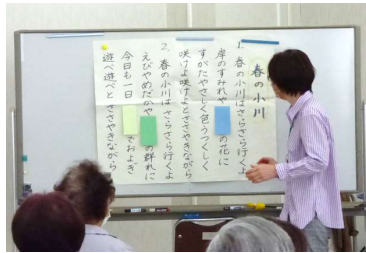 春の小川
1. 春の小川はさらさら行くよ
岸のすみれや の花に
すがたやさしく色うつくしく
咲けよ咲けよとささやきながら
2. 春の小川はさらさら行くよ
えびやめだかや の群れに
今日も一日 でおよぎ
遊べ遊べとささやきながら